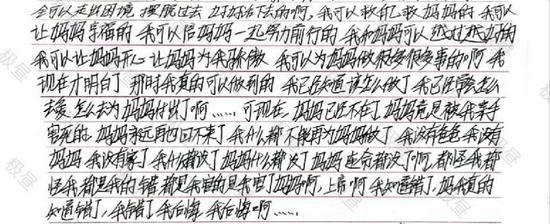 会可以走出困境 摆脱过去 好好活下去的啊,我可以救自己救妈妈的 我可以
让妈妈幸福的 我可以陪妈妈一起努力前行的 我和妈妈可以越过越好的
我可以让妈妈开心 让妈妈为我骄傲 我可以为妈妈做很多很多事的啊 我
现在才明白了 那时我真的可以做到的 我已经知道该怎么做了 我已经学会怎么
去爱 怎么去为妈妈付出了啊……可现在,妈妈已经不在了 妈妈竟是被我亲手
害死的 妈妈永远再也回不来了 我什么都不能再为妈妈做了 我没有爸爸 我没有
妈妈 我没有家了 我什么都没了 妈妈什么都没了 妈妈连命都没了啊,都怪我 都
怪我 都是我的错 都是我害的 是我害了妈妈啊,上帝啊 我知道错了,妈 我真的
知道错了,我错了 我后悔 我后悔啊……
极昼
极昼
极昼